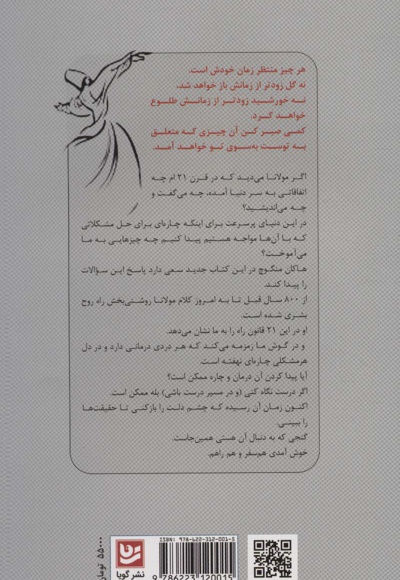 هر چیز منتظر زمان خودش است.
نه گل زودتر از زمانش باز خواهد شد،
نـه خورشـید زودتـر از زمانـش طلـوع
خواهـد کـرد.
کمـی صبـر کـن آن چیـزی کـه متعلـق
بـه توسـت به‌سـوی تـو خواهـد آمـد.
اگـر مولانـا می‌دیـد کـه در قـرن ۲۱ ام چـه
اتفاقاتـی بـه سـر دنیـا آمـده، چـه می‌گفـت و
چـه می‌اندیشـید؟
در ایـن دنیـای پرسـرعت بـرای اینکـه چـاره‌ای بـرای حـل مشـکلاتی
کـه بـا آن‌هـا مواجـه هسـتیم پیـدا کنیـم چـه چیزهایـی بـه مـا
می‌آموخـت؟
هـاکان منگـوچ در ایـن کتـاب جدیـد سـعی دارد پاسـخ ایـن سـؤالات
را پیـدا کنـد.
از ۸۰۰ سـال قبـل تـا بـه امـروز کلام مولانـا روشـنی‌بخش راه روح
بشـری شـده اسـت.
او در این ۲۱ قانون راه را به ما نشان می‌دهد.
و در گـوش مـا زمزمـه می‌کنـد کـه هـر دردی درمانـی دارد و در دل
هرمشـکلی چـاره‌ای نهفتـه اسـت.
آیا پیدا کردن آن درمان و چاره ممکن است؟
اگر درست نگاه کنی (و در مسیر درست باشی) بله ممکن است.
اکنـون زمـان آن رسـیده کـه چشـم دلـت را بازکنـی تـا حقیقت‌هـا
را ببینـی.
گنجی که به دنبال آن هستی همین‌جاست.
خوش آمدی هم‌سفر و هم راهم.
۵۵۰۰۰ تومان
نشر گویا
ISBN: 978-622-312-001-5
9 786223 120015